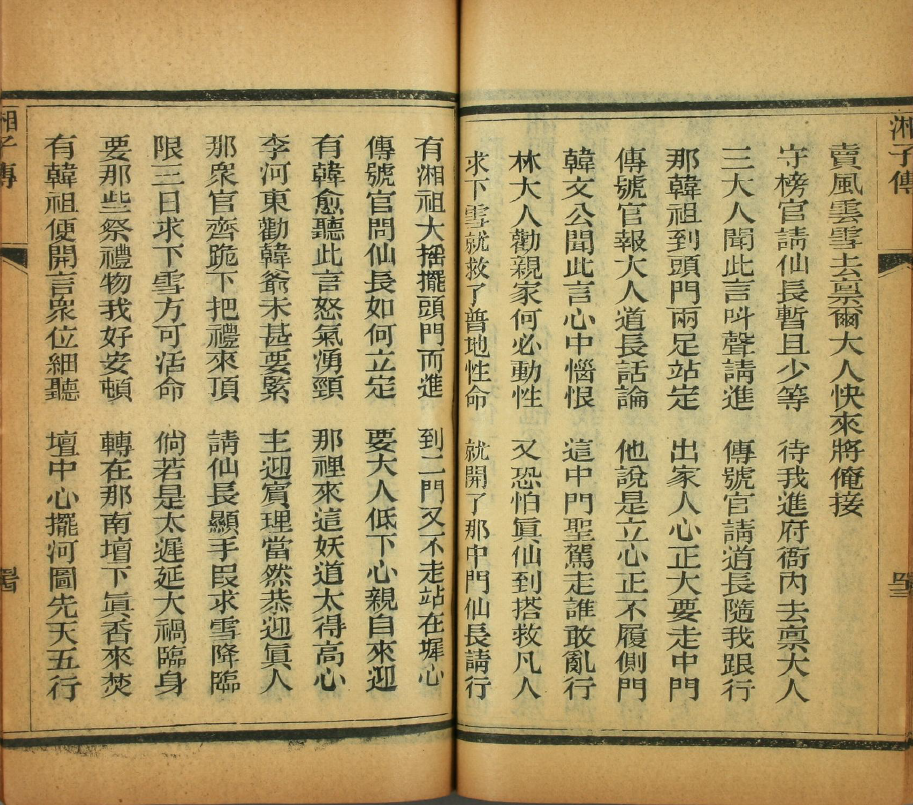 湘子傳
賣風雲雪去禀爾大人快來將俺接
守榜官請仙長暫且少等　待我進府衙內去禀大人
三大人聞此言呌聲請進　傳號官請道長隨我跟行
那韓祖到頭門兩足站定　出家人心正大要走中門
傳號官報大人道長話論　他說是立心正不履側門
韓文公聞此言心中惱恨　這中門聖駕走誰敢亂行
林大人勸親家何必動性　又恐怕眞仙到搭救凡人
求下雪就救了普地性命　就開了那中門仙長請行
有湘祖大摇擺頭門而進　到二門又不走站在墀心
傳號官問仙長如何立定　要大人低下心親自來迎
有韓愈聽此言怒氣湧頸　那裡來這妖道太得高心
李河東勸韓爺未甚要緊　主迎賓理當然恭迎眞人
那衆官齊跪下把禮來頂　請仙長顯手段求雪降臨
限三日求下雪方可活命　倘若是太遲延大禍臨身
要那些祭禮物我好安頓　轉在那南壇下眞香來焚
有韓祖便開言衆位細聽　壇中心擺河圖先天五行
湘子傳